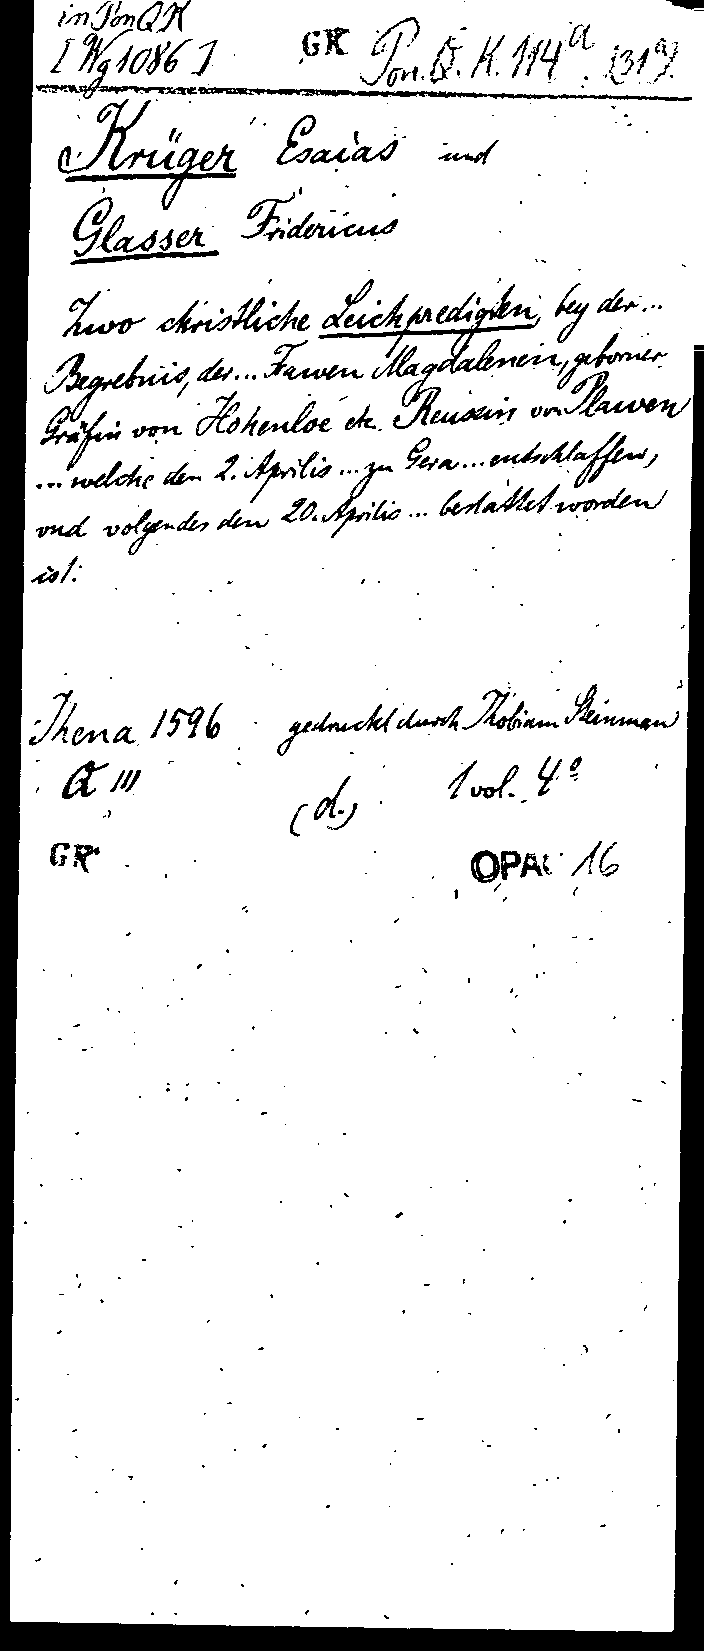 in Pon QK
[Wg 1086] GK Pon. Q. K. 114a. (319).
Krüger Esaias und
Glasser Fridericus
Zwo christliche Leichpredigten, bey der...
Begrebnis, der... Frawen Magdalenen, geborner
Gräfin von Hohenloe etc. Reussin von Plawen
... welche den 2. Aprilis ... zu Gera ... entschlaffen,
vnd volgendes den 20. Aprilis ... bestattet worden
ist.
Jhena 1596 gedruckt durch Thobiam Steinman
Q III (d.) 1 vol. 4°
GK OPAC 16